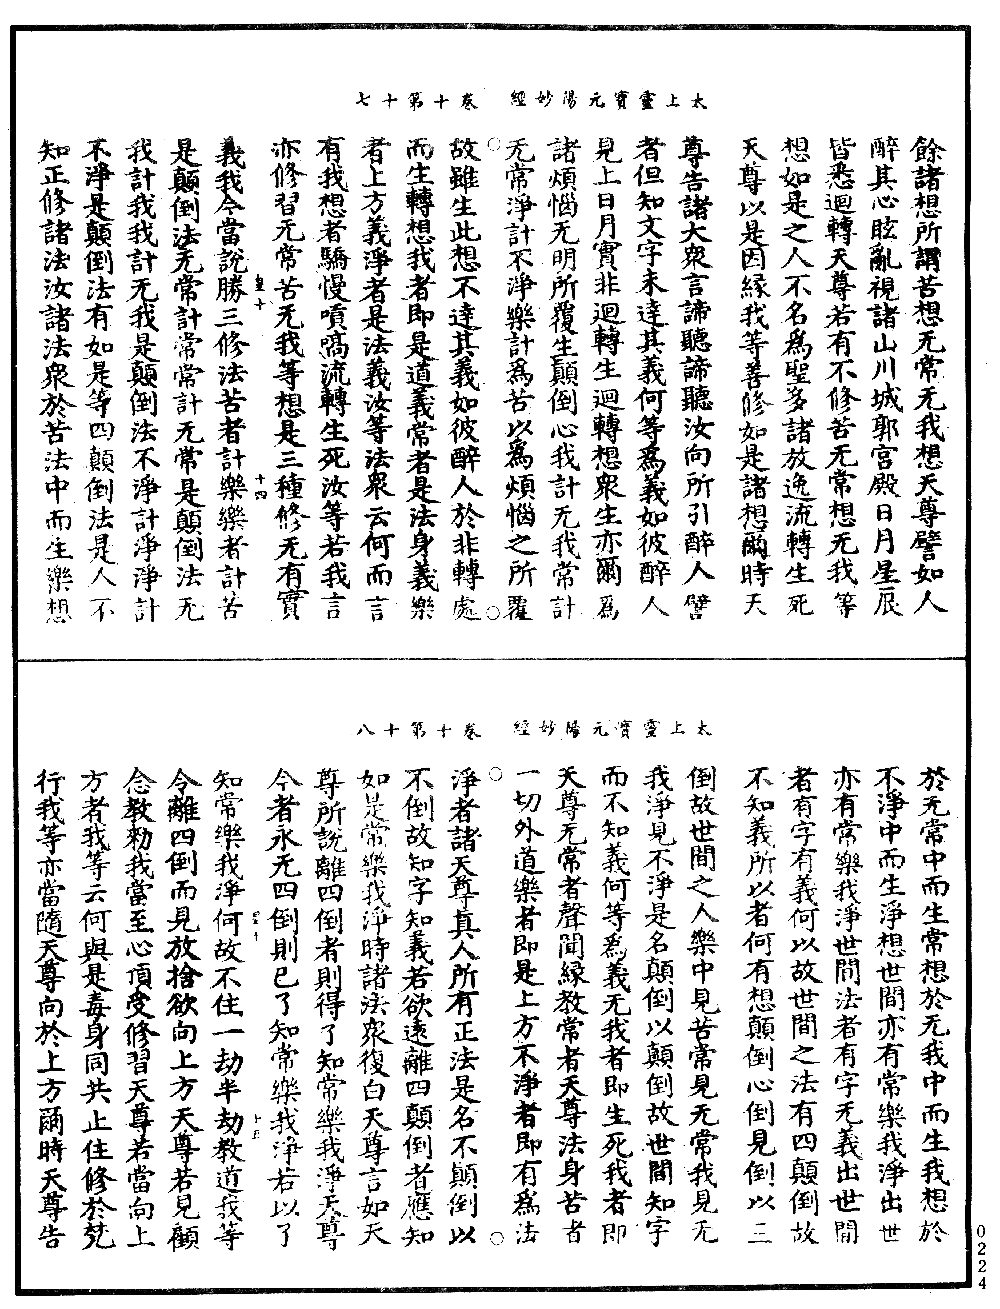 太上靈寳元陽妙經　卷十第十七
餘諸想所謂苦想无常无我想天尊譬如人
醉其心眩亂視諸山川城郭宮殿日月星辰
皆悉迴轉天尊若有不修苦无常想无我等
想如是之人不名爲聖多諸放逸流轉生死
天尊以是因縁我等善修如是諸想爾時天
尊告諸大衆言諦聽諦聽汝向所引醉人譬
者但知文字未達其義何等爲義如彼醉人
見上日月實非迴轉生迴轉想衆生亦爾爲
諸煩惱无明所覆生顛倒心我計无我常計
无常淨計不淨樂計爲苦以爲煩惱之所覆
故雖生此想不達其義如彼醉人於非轉處
而生轉想我者即是道義常者是法身義樂
者上方義淨者是法義汝等法衆云何而言
有我想者驕慢嗔嗃流轉生死汝等若我言
亦修習无常苦无我等想是三種修无有實
皇十　十四
義我今當說勝三修法苦者計樂樂者計苦
是顛倒法无常計常常計无常是顛倒法无
我計我我計无我是顛倒法不淨計淨淨計
不淨是顛倒法有如是等四顛倒法是人不
知正修諸法汝諸法衆於苦法中而生樂想
太上靈寳元陽妙經　卷十第十八
於无常中而生常想於无我中而生我想於
不淨中而生淨想世間亦有常樂我淨出世
亦有常樂我淨世間法者有字无義出世間
者有字有義何以故世間之法有四顛倒故
不知義所以者何有想顛倒心倒見倒以三
倒故世間之人樂中見苦常見无常我見无
我淨見不淨是名顛倒以顛倒故世間知字
而不知義何等爲義无我者即生死我者即
天尊无常者聲聞縁教常者天尊法身苦者
一切外道樂者即是上方不淨者即有爲法
淨者諸天尊真人所有正法是名不顛倒以
不倒故知字知義若欲遠離四顛倒者應知
如是常樂我淨時諸法衆復白天尊言如天
尊所說離四倒者則得了知常樂我淨天尊
今者永无四倒則已了知常樂我淨若以了
十五
知常樂我淨何故不住一劫半劫教道我等
令離四倒而見放捨欲向上方天尊若見顧
念教勑我當至心頂受修習天尊若當向上
方者我等云何與是毒身同共止住修於梵
行我等亦當隨天尊向於上方爾時天尊告
0224